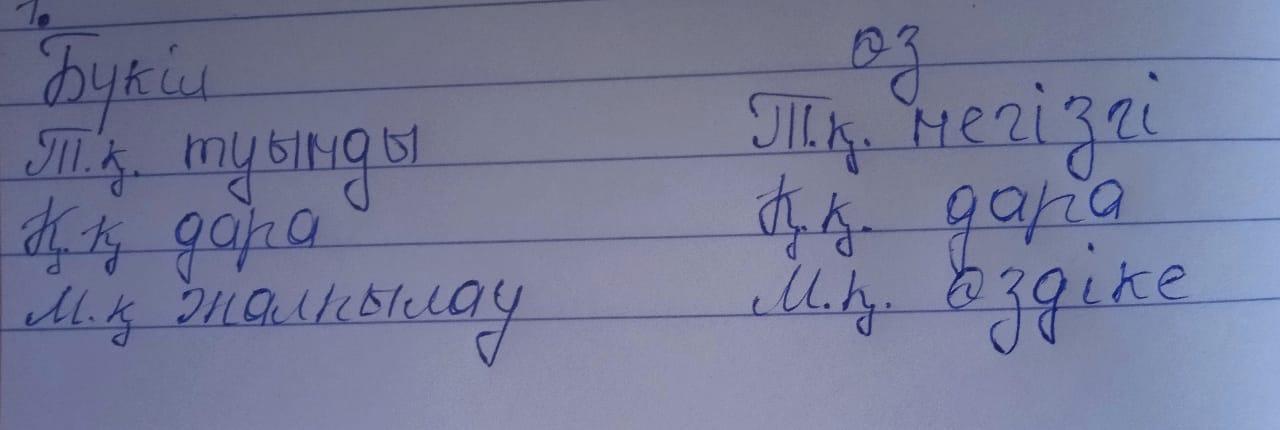 1.
Бүкіл
Т.қ. туынды
Қ.қ дара
М.қ жалпылау
өз
Т.қ. негізгі
Қ.қ. дара
М.қ. өздіке